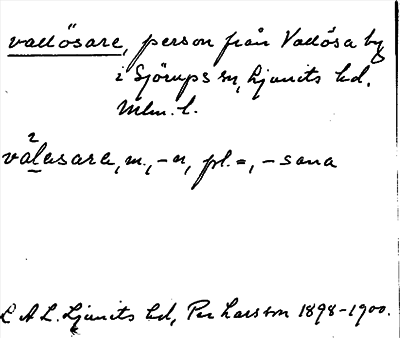 vadösare, person från Vadösa by
i Sjörups sn, Ljunits hd.
Mlm. l.
2
valesare, m., -n, pl. =, -sana
L A L. Ljunits hd, Per Larsson 1898-1900.